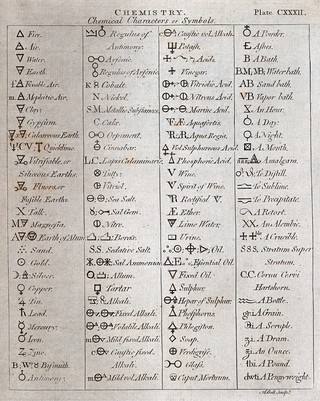 CHEMISTRY. Plate CXXXII.
Chemical Characters or Symbols.
Fire.
Air.
Water.
Earth.
Fixable Air.
Mephitic Air.
Clay.
Gypsum.
Calcareous Earth.
Quicklime.
Vitrifiable, or
Siliceous Earths.
Fluors, or
Fusible Earths.
X Talk.
M Magnesia.
Earth of Alum.
Sand.
Gold.
Silver.
Copper.
Tin.
Lead.
Mercury.
Iron.
Zinc.
B; W Bismuth.
Antimony.
Regulus of
Antimony.
Arsenic.
Regulus of Arsenic.
K Cobalt.
N. Nickel.
S.M. Metallic Substances.
C. Calx.
Orpiment.
Cinnabar.
L.C. Lapis Calaminaris.
Tutty.
Vitriol.
Sea Salt.
Sal Gem.
Nitre.
Borax.
S.S. Sedative Salt.
Sal Ammoniac.
Allum.
Tartar
Alkali.
Fixed Alkali.
Volatile Alkali.
Mild fixed Alkali.
Caustic fixed
Alkali.
Mild vol. Alkali.
Caustic vol. Alkali.
Potash.
Acids.
Vinegar.
Vitriolic Acid.
Nitrous Acid.
Marine Acid.
Aquafortis.
Aqua Regia.
Vol. Sulphureous Acid.
Phosphoric Acid.
Wine.
Spirit of Wine.
Rectified V.
Æther.
Lime Water.
Urine.
Oil.
Essential Oil.
Fixed Oil.
Sulphur.
Hepar of Sulphur.
Phosphorus.
Phlogiston.
Soap.
Verdigrise.
Glass.
Caput Mortuum.
A Powder.
Ashes.
B A Bath.
B.M; MB Water bath.
AB Sand bath.
VB Vapor bath.
An Hour.
A Day.
A Night.
A Month.
Amalgam.
To Distill.
To Sublime.
To Precipitate.
A Retort.
XX An Alembic.
A Crucible.
S.S.S. Stratum Super
Stratum.
C.C. Cornu Cervi
Hartshorn.
A Bottle.
gr. A Grain.
A Scruple.
A Dram.
An Ounce.
A Pound.
dwt A Pennyweight.
A. Bell Sculpt.